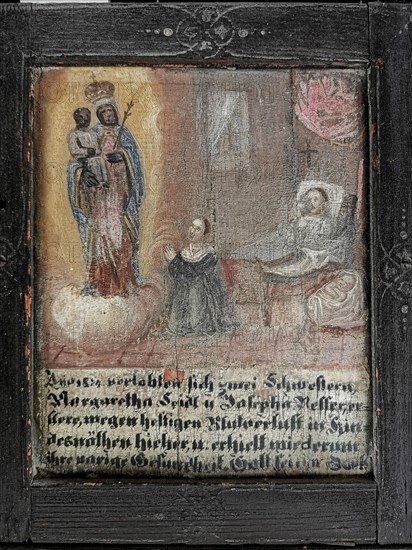 Ano 1814 verlobten sich zwei Schwestern
Margaretha Seidl u Josepha Nesser, er-
stere, wegen heftigen Blutverlust in Kin
desnöthen hieher, u. erhielt wiederum
ihre vorige Gesundheit, Gott sei